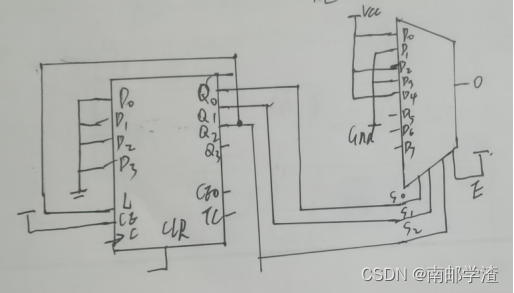 Vcc
D0
D1
D2
D3
D4
D5
D6
D7
O
Gnd
E
S0
S1
S2
D0
D1
D2
D3
L
CE
C
CLR
Q0
Q1
Q2
Q3
CEO
TC
CSDN @南邮学渣